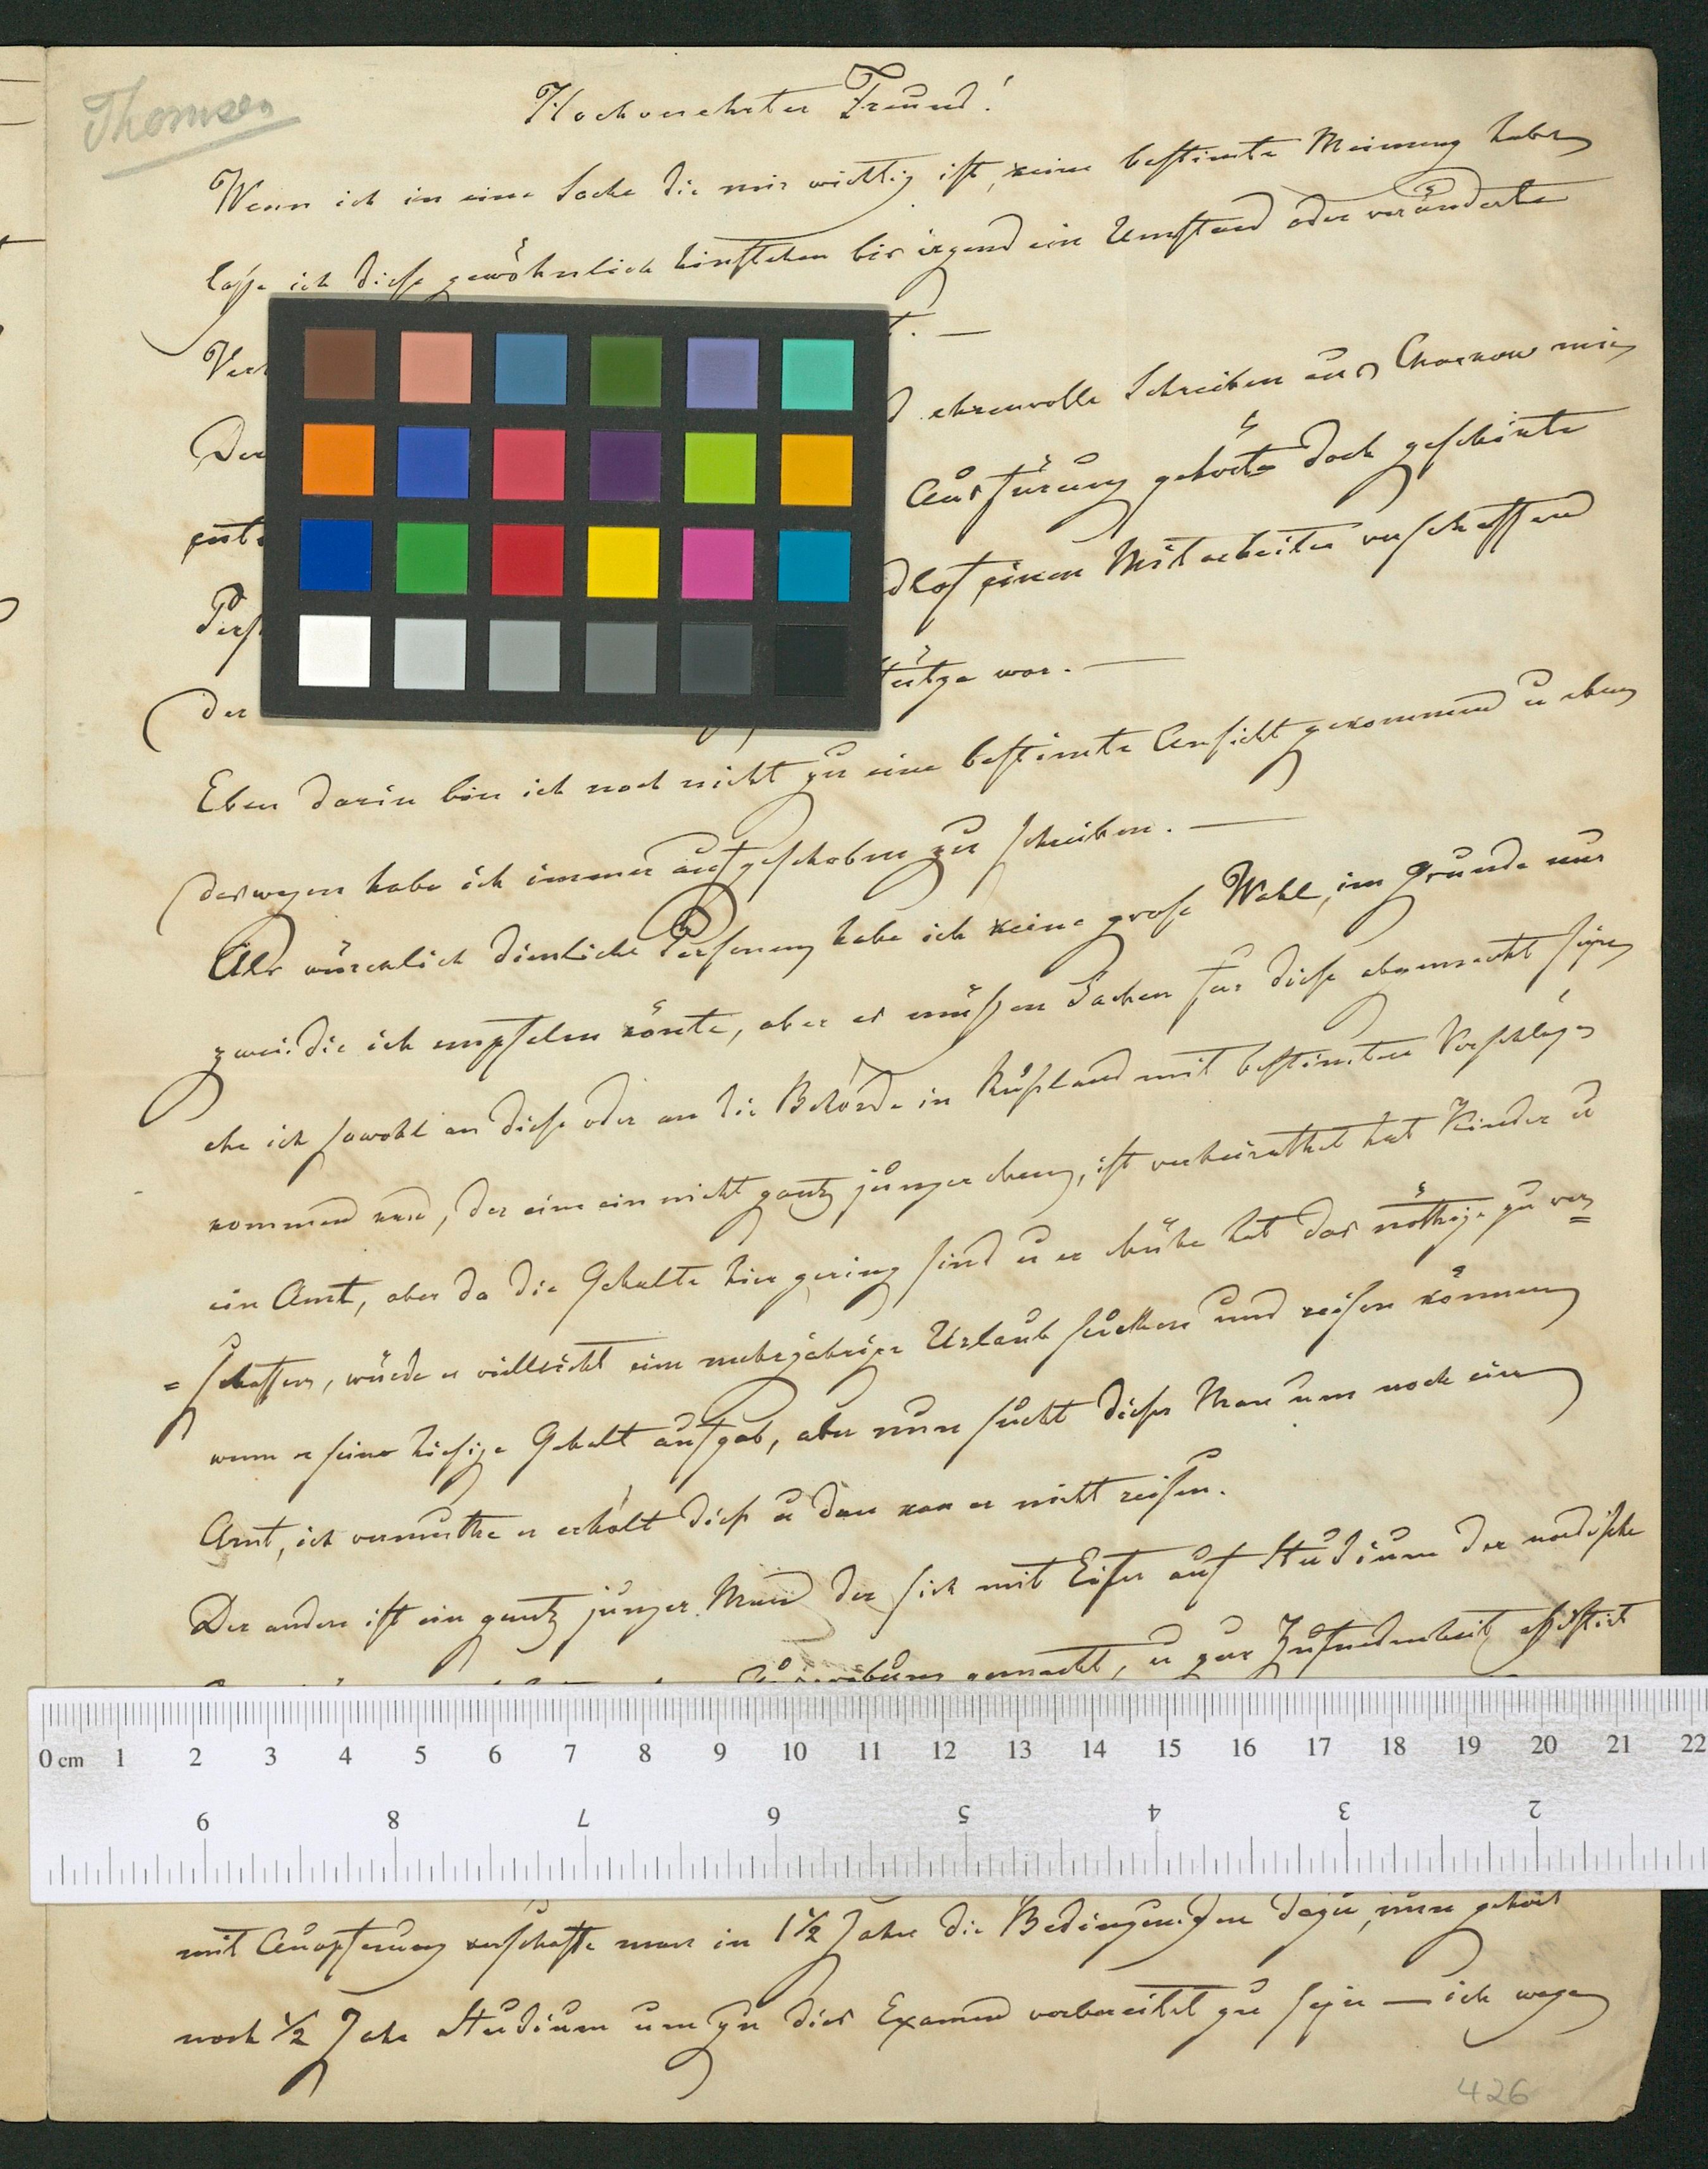 Thomsen
Hochverehrter Freund!
Wenn ich in eine Sache die mir wichtig ist, keine bestimte Meinung habe,
lasse ich diese gewöhnlich hinstehen bis irgend ein Umstand oder veränderte
Der ehrenvolle Schreiben aus Charkow mir
Ausfürung gehörte doch geschickte
einen Mitarbeiter verschaffen
der war. —
Eben darin bin ich noch nicht zu eine bestimte Ansicht gekommen u eben
deswegen habe ich immer aufgeschoben zu schreiben. —
Als würcklich dienliche Personen habe ich keine grose Wahl, im Grunde nur
zwei die ich empfelen könte, aber es müssen Sachen für diese abgemacht seyn
ehe ich sowohl an diese oder an die Behörde in Rußland mit bestimten Vorschläge
kommen kan, der eine ein nicht gantz junger, ist verheirathet hat Kinder u
ein Amt, aber da die Gehalte hier gering sind u er Mühe hat das nöthige zu ver=
=schaffen, würde er villeicht eine mehrjährige Urlaub suchen und reisen können
wenn er seine hiesige Gehalt aufgab, aber nun sucht dieser Man um noch ein
Amt, ich vermuthe er erhält dies u dan kan er nicht reisen.
Der andere ist ein gantz junger Man der sich mit Eifer auf Studium der nordische
gemacht, u zur Zufriedenheit
mit Aufopferung verschafte man in 1½ Jahre die Bedingungen dazu, nun gehört
noch ½ Jahr Studium um zu dies Examen vorbereitet zu seyn — ich wage
426
0 cm 1 2 3 4 5 6 7 8 9 10 11 12 13 14 15 16 17 18 19 20 21 22
9 8 7 6 5 4 3 2